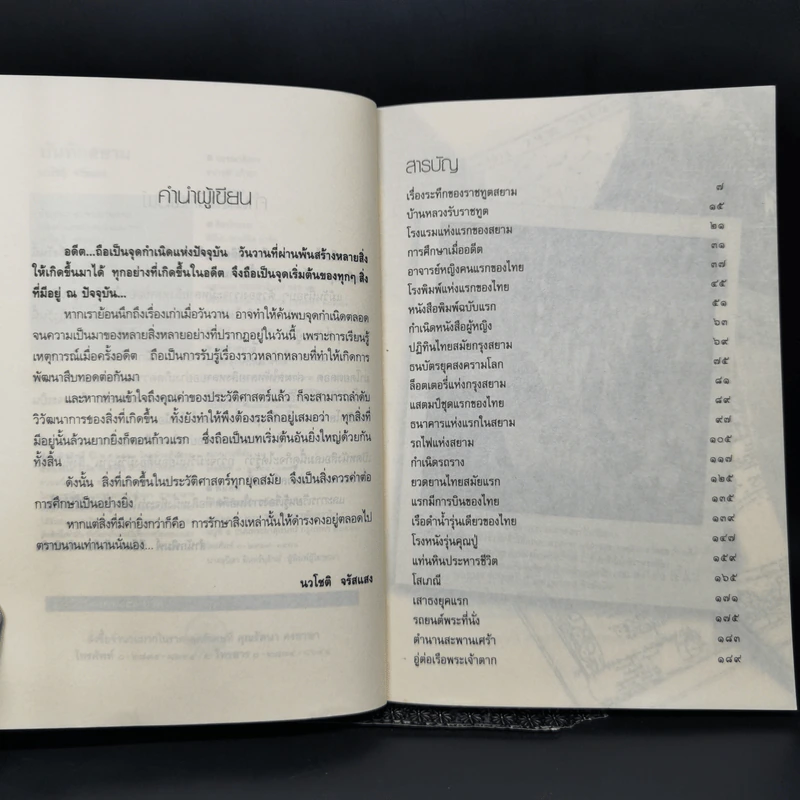 คำนำผู้เขียน
อดีต...ถือเป็นจุดกำเนิดแห่งปัจจุบัน วันวานที่ผ่านพ้นสร้างหลายสิ่ง
ให้เกิดขึ้นมาได้ ทุกอย่างที่เกิดขึ้นในอดีต จึงถือเป็นจุดเริ่มต้นของทุกๆ สิ่ง
ที่มีอยู่ ณ ปัจจุบัน...
หากเราย้อนนึกถึงเรื่องเก่าเมื่อวันวาน อาจทำให้ค้นพบจุดกำเนิดตลอด
จนความเป็นมาของหลายสิ่งหลายอย่างที่ปรากฏอยู่ในวันนี้ เพราะการเรียนรู้
เหตุการณ์เมื่อครั้งอดีต ถือเป็นการรับรู้เรื่องราวหลากหลายที่ทำให้เกิดการ
พัฒนาสืบทอดต่อกันมา
และหากท่านเข้าใจถึงคุณค่าของประวัติศาสตร์แล้ว ก็จะสามารถลำดับ
วิวัฒนาการของสิ่งที่เกิดขึ้น ทั้งยังทำให้พึงต้องระลึกอยู่เสมอว่า ทุกสิ่งที่
มีอยู่นั้นล้วนยากยิ่งก็ตอนก้าวแรก ซึ่งถือเป็นบทเริ่มต้นอันยิ่งใหญ่ด้วยกัน
ทั้งสิ้น
ดังนั้น สิ่งที่เกิดขึ้นในประวัติศาสตร์ทุกยุคสมัย จึงเป็นสิ่งควรค่าต่อ
การศึกษาเป็นอย่างยิ่ง
หากแต่สิ่งที่มีค่ายิ่งกว่าก็คือ การรักษาสิ่งเหล่านั้นให้ดำรงคงอยู่ตลอดไป
ตราบนานเท่านานนั่นเอง...
นวโชติ จรัสแสง
สารบัญ
เรื่องระทึกของราชทูตสยาม ๗
บ้านหลวงรับราชทูต ๑๕
โรงแรมแห่งแรกของสยาม ๒๑
การศึกษาเมื่ออดีต ๓๑
อาจารย์หญิงคนแรกของไทย ๓๗
โรงพิมพ์แห่งแรกของไทย ๔๕
หนังสือพิมพ์ฉบับแรก ๕๑
กำเนิดหนังสือผู้หญิง ๖๓
ปฏิทินไทยสมัยกรุงสยาม ๖๙
ธนบัตรยุคสงครามโลก ๗๕
ล็อตเตอรี่แห่งกรุงสยาม ๘๑
แสตมป์ชุดแรกของไทย ๘๙
ธนาคารแห่งแรกในสยาม ๙๗
รถไฟแห่งสยาม ๑๐๕
กำเนิดรถราง ๑๑๗
ยวดยานไทยสมัยแรก ๑๒๕
แรกมีการบินของไทย ๑๓๕
เรือดำน้ำรุ่นเดียวของไทย ๑๓๙
โรงหนังรุ่นคุณปู่ ๑๔๗
แท่นหินประหารชีวิต ๑๕๙
โสเภณี ๑๖๕
เสาธงยุคแรก ๑๗๑
รถยนต์พระที่นั่ง ๑๗๕
ตำนานสะพานเศร้า ๑๘๓
อู่ต่อเรือพระเจ้าตาก ๑๘๙